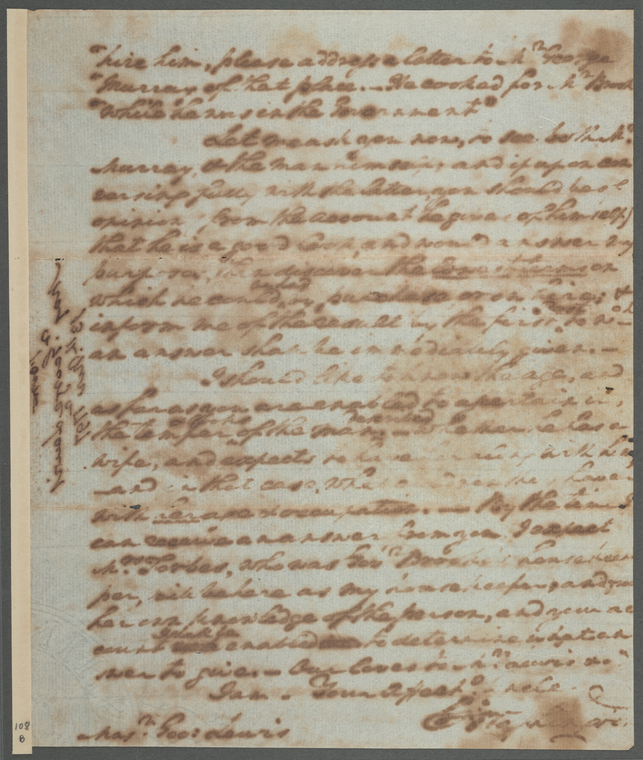 "hire him, please address a letter to Mr George
"Murray of that place. — He cooked for Mr Brooke
"while he was in the Government"
Let me ask you now, to see both Mr.
Murray, & the man himself; and if upon con
versing fully with the latter you should be of
opinion, (from the account he gives of himself)
that he is a good Cook, and would answer my
purposes, then discover the lowest terms on
which he could be had, by purchase or on hire; &
inform me of the result by the first Post, to wch
an answer shall be immediately given. —
I should like to know the age, and
as far as you are enabled to ascertain it,
the temper of the man — whether he has a
wife, and expects to have her along with him
— and in that case, what children they have
with
occupations. — By the time I
can receive an answer from you, I expect
Mrs Forbes, who was Govr Brooke's housekee
per, will be here as my housekeeper, and from
her own knowledge of the person, and your ac
count shall be enabled to determine what an
swer to give. — Our love to Mrs Lewis
I am — Your Affecte Uncle
Go: Washington
Majr Geo: Lewis
108
B